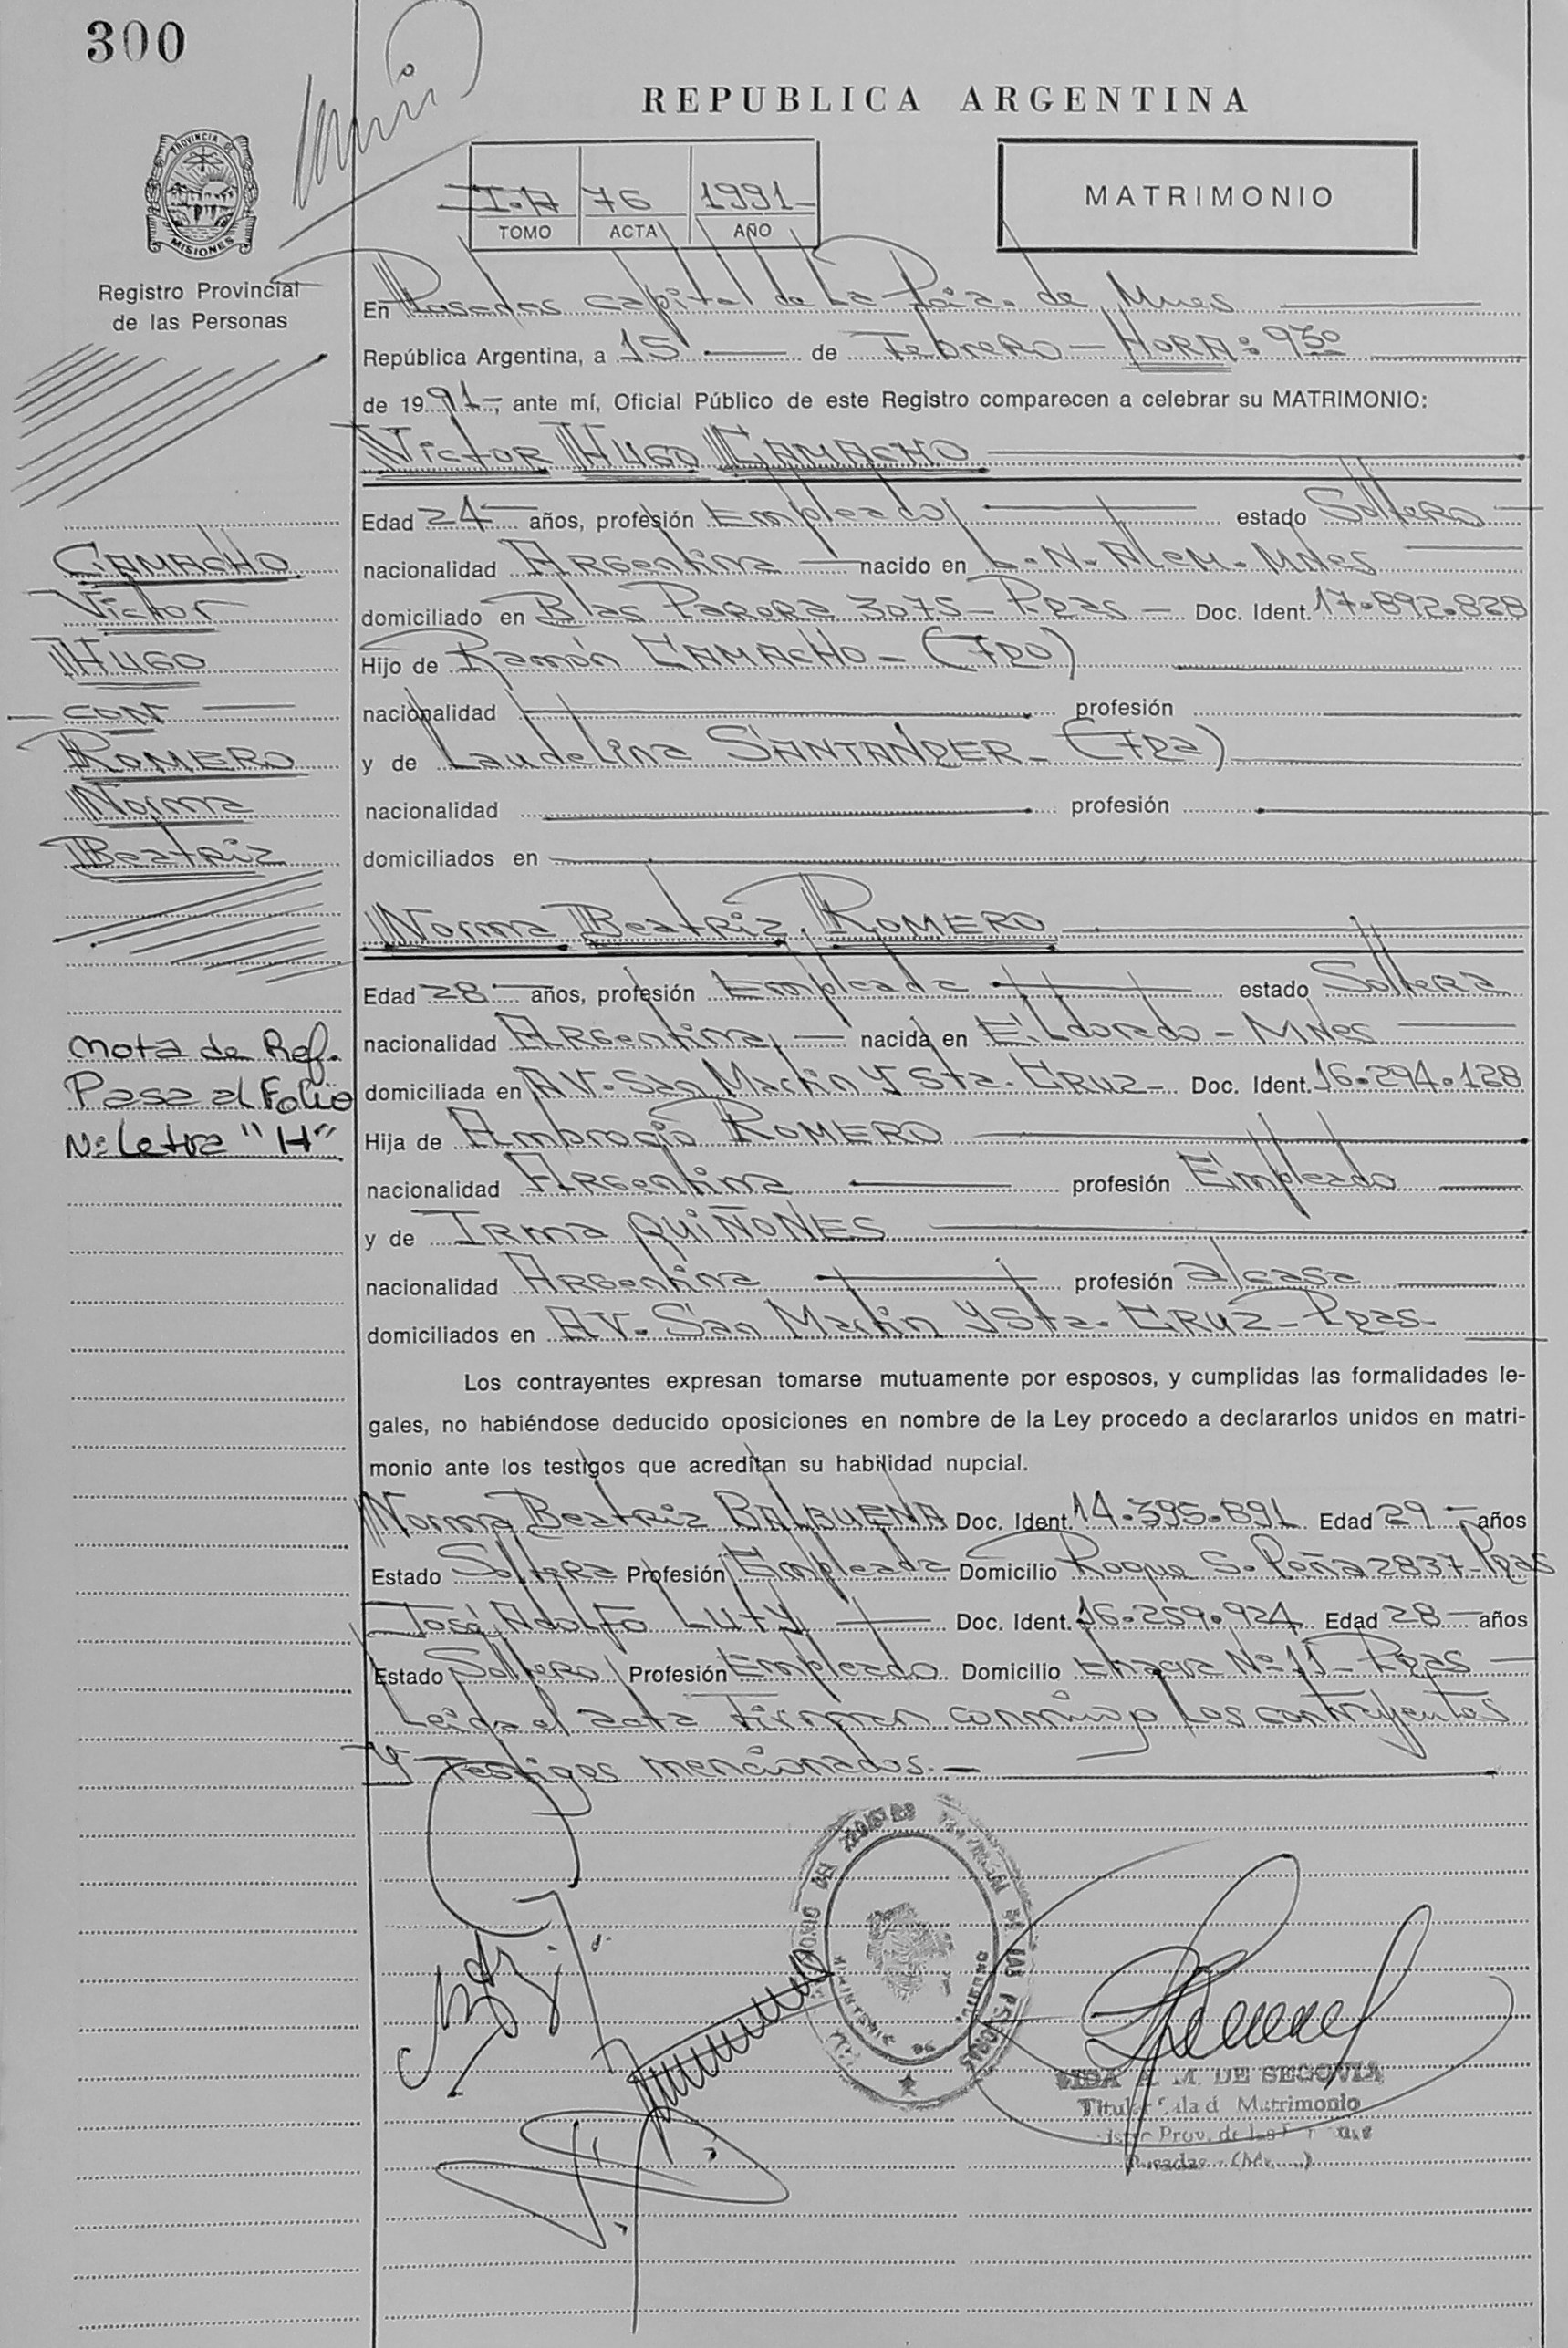 300
REPUBLICA ARGENTINA
I.A 76 1991
TOMO ACTA AÑO
MATRIMONIO
PROVINCIA DE
MISIONES
Registro Provincial
de las Personas
En Posadas capital de La Pcia. de Mnes
República Argentina, a 15 de Febrero - HORA: 9 30
de 1991-, ante mí, Oficial Público de este Registro comparecen a celebrar su MATRIMONIO:
Victor Hugo CAMACHO
Edad 24 años, profesión Empleado estado Soltero
nacionalidad Argentina nacido en L.N. Alem. Mnes
domiciliado en Blas Parera 3075 - Pdas - Doc. Ident. 17.892.828
Hijo de Ramón CAMACHO - (Fdo)
nacionalidad profesión
y de Laudelina SANTANDER - (Fda)
nacionalidad profesión
domiciliados en
CAMACHO
Victor
Hugo
- CON -
ROMERO
Norma
Beatriz
Norma Beatriz ROMERO
Edad 28 años, profesión Empleada estado Soltera
nacionalidad Argentina, nacida en Eldorado - Mnes
domiciliada en AV. San Martin Y Sta. CRUZ - Doc. Ident. 16.294.128
Hija de Ambrosio ROMERO
nacionalidad Argentina profesión Empleado
y de Irma QUIÑONES
nacionalidad Argentina profesión a/casa
domiciliados en AV. San Martin Y Sta. CRUZ - Pdas.
Nota de Ref.
Pasa al Folio
Nº Letra "H"
Los contrayentes expresan tomarse mutuamente por esposos, y cumplidas las formalidades le-
gales, no habiéndose deducido oposiciones en nombre de la Ley procedo a declararlos unidos en matri-
monio ante los testigos que acreditan su habilidad nupcial.
Norma Beatriz BALBUENA Doc. Ident. 14.395.891 Edad 29 años
Estado Soltera Profesión Empleada Domicilio Roque S. Peña 2837 - Pdas
José Adolfo LUTY Doc. Ident. 16.259.924 Edad 28 años
Estado Soltero Profesión Empleado Domicilio Chacra Nº 11 - Pdas
Leida el acta Firman conmigo los contrayentes
Y Testigos mencionados. -
M. DE SEGOVIA
Titular Sala d Matrimonio
Prov. de las
Posadas